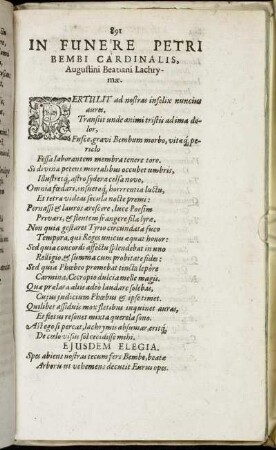 891
IN FUNERE PETRI
BEMBI CARDINALIS,
Augustini Beatiani Lachry-
mæ.
PERTULIT ad nostras infelix nuncius
aures,
Transiit unde animi tristis ad ima do-
lor,
Fusce, gravi Bembum morbo, vitæq́; pe-
riclo
Fessa laborantem membra tenere toro.
Si divina petens mortalibus occubet umbris,
Illustretq́; astro sydera celsa novo,
Omnia fœdari, insuetoq́; horrentia luctu,
Et tetra videas secula nocte premi:
Parnassi & lauros arescere, luce Poësim
Privari, & flentem frangere fila lyræ.
Non quia gestaret Tyrio circundata fuco
Tempora, qui Reges unicus equat honor:
Sed quia concordi assessu splendebat in uno
Religio, & summa cum probitate fides:
Sed quia Phœbeo promebat tincta lepore
Carmina, Cecropio dulcia melle magis.
Quæ prælata aliis adeò laudare solebas,
Cujus judicium Phœbus & ipse timet.
Quilibet assiduis mox fletibus inquinet auras,
Et fletus resonet mixta querela sono.
Ast ego si pereat, lachrymis absumar, eritq́;
De cœlo visus sol cecidisse mihi.
EJUSDEM ELEGIA.
Spes abiens nostras tecum fers Bembe, beatæ
Arboris ut vehemens decutit Eurus opes.